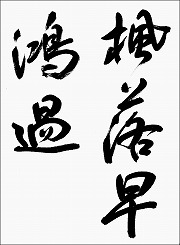 楓落早
鴻過